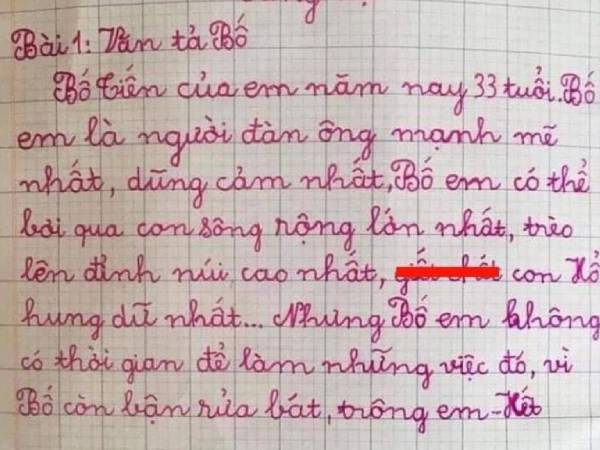 Bài 1: Văn tả Bố
Bố Tiến của em năm nay 33 tuổi. Bố
em là người đàn ông mạnh mẽ
nhất, dũng cảm nhất, Bố em có thể
bơi qua con sông rộng lớn nhất, trèo
lên đỉnh núi cao nhất, con Hổ
hung dữ nhất... Nhưng Bố em không
có thời gian để làm những việc đó, vì
Bố còn bận rửa bát, trông em - Hết